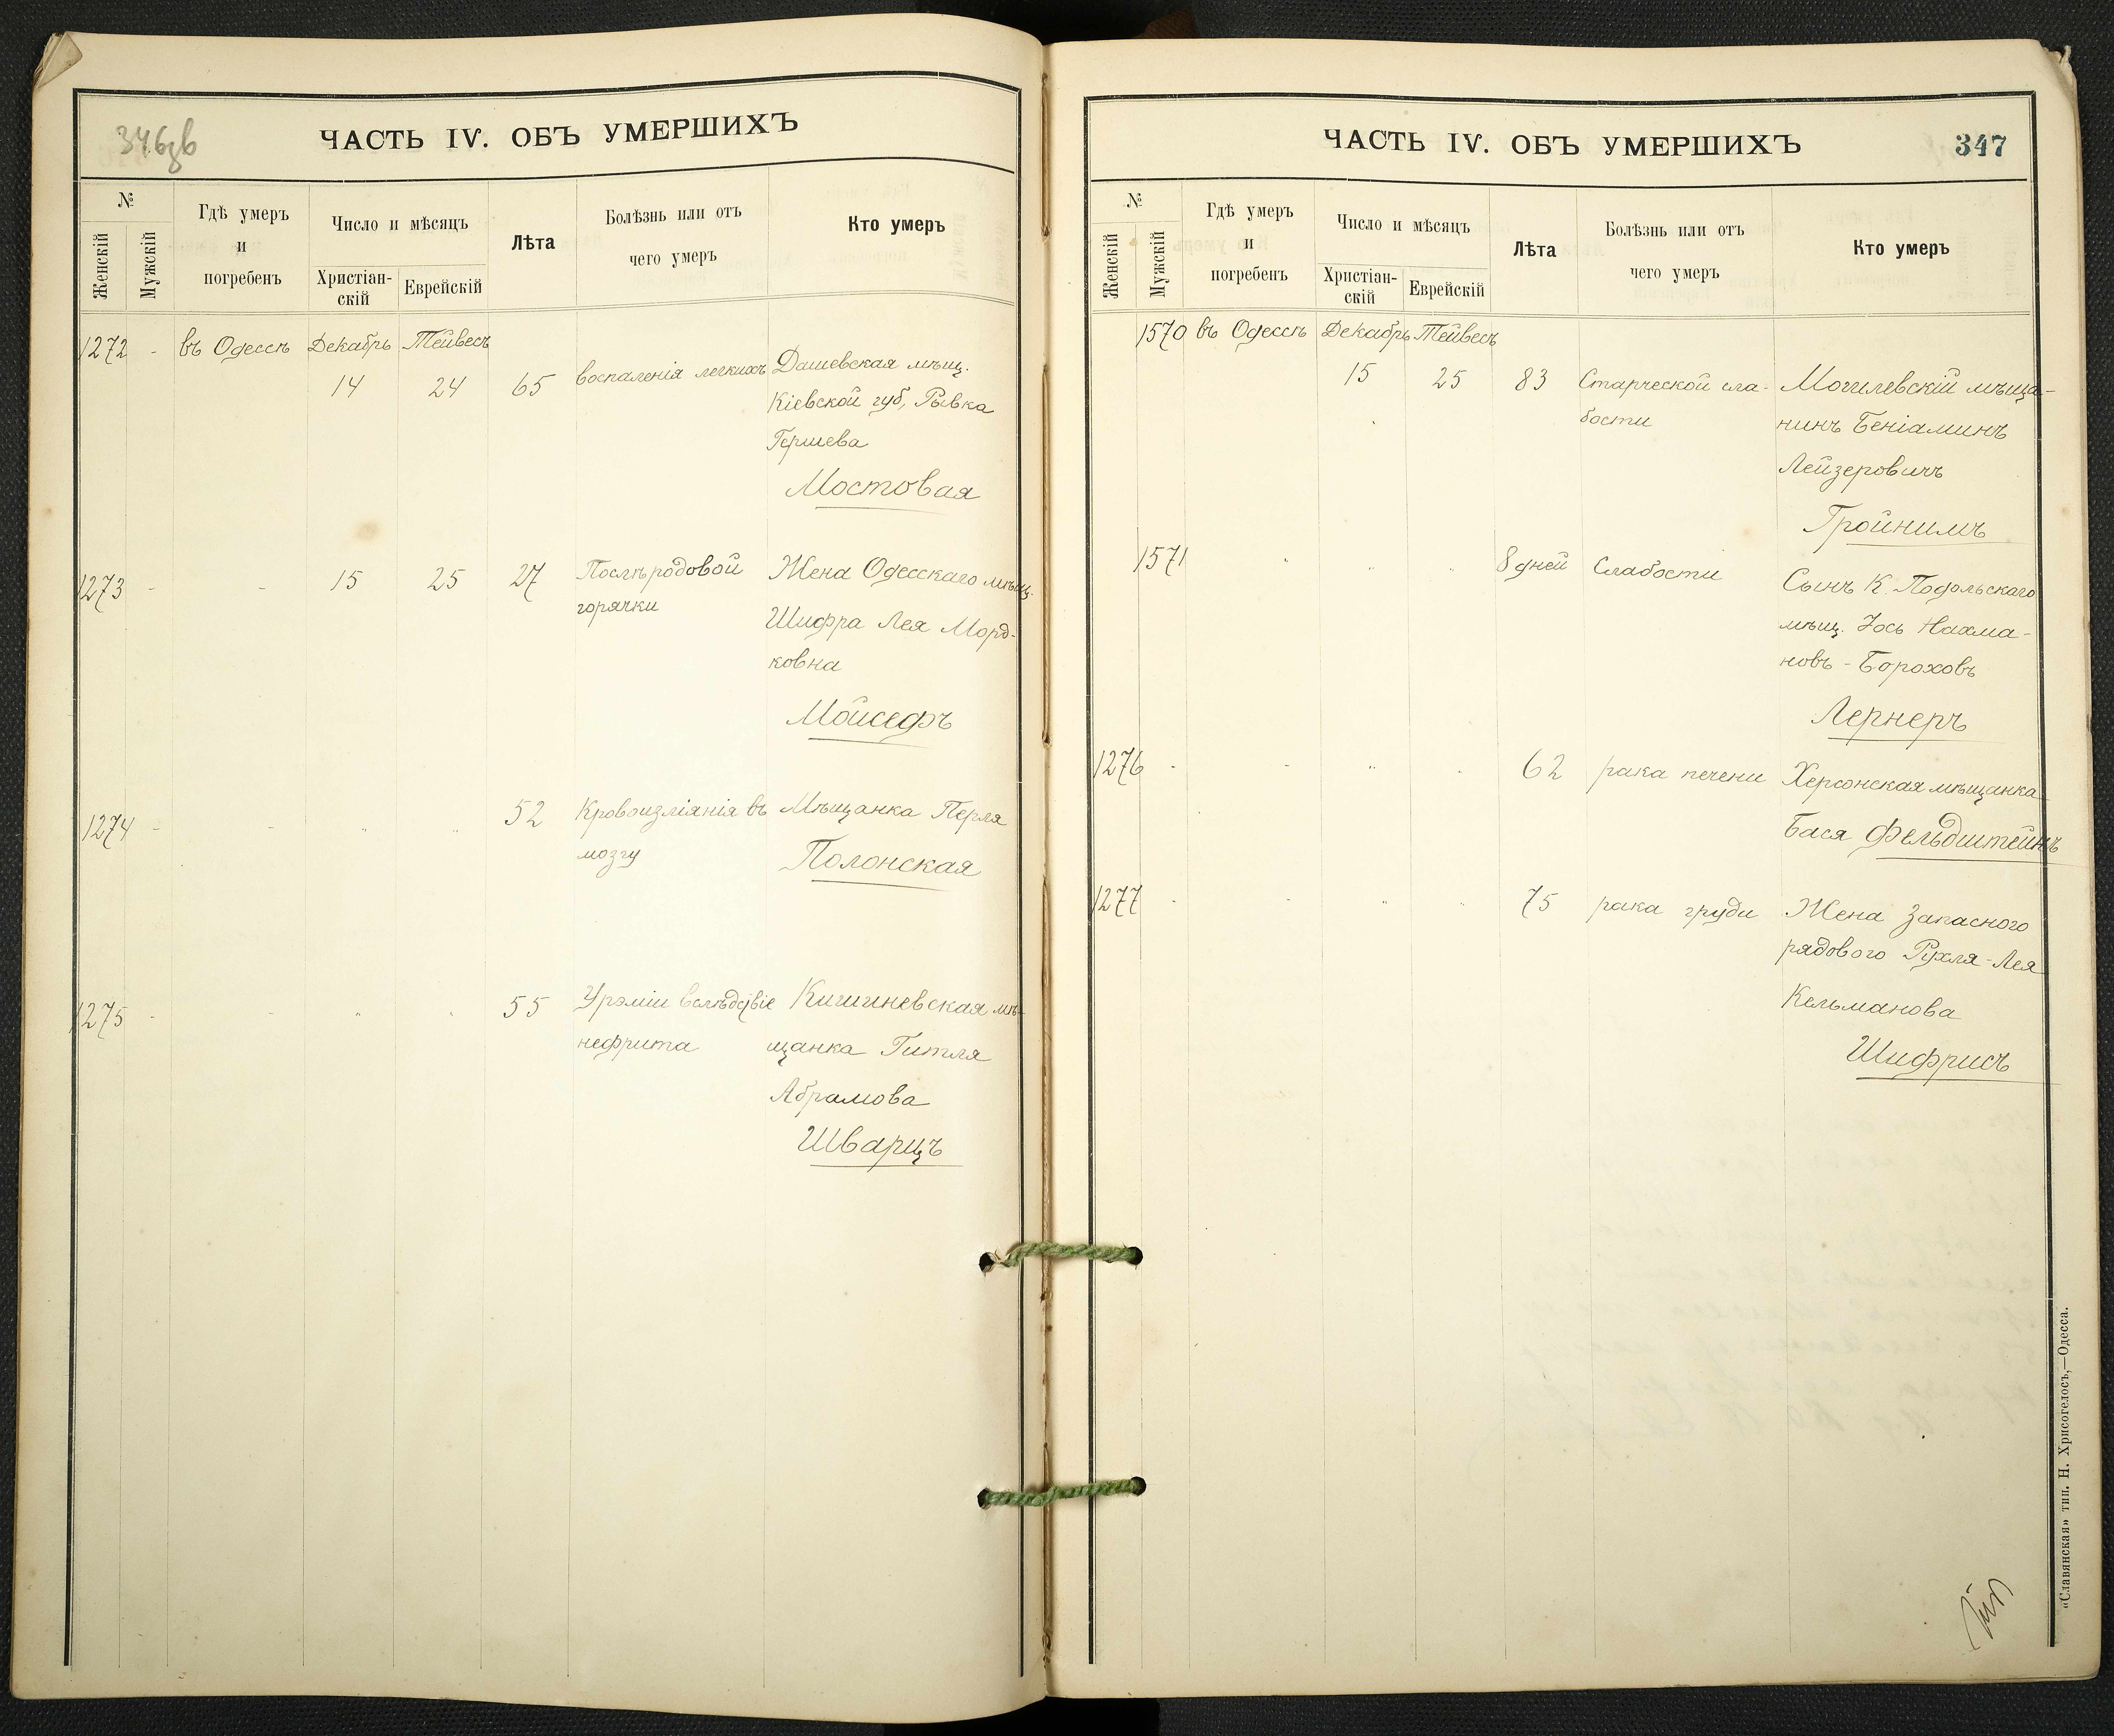 346зв
ЧАСТЬ IV. ОБЪ УМЕРШИХЪ
№
Женскій
Мужскій
Гдѣ умеръ
и
погребенъ
Число и мѣсяцъ
Христіан-
скій
Еврейскій
Лѣта
Болѣзнь или отъ
чего умеръ
Кто умеръ
1272 - въ Одессѣ Декабрь Тейвесъ
14 24 65 воспаленія легкихъ Дашевская мѣщ.
Кіевской губ, Рывка
Гершева
Мостовая
1273 - - 15 25 27 Послѣродовой Жена Одесскаго мѣщ.
горячки Шифра Лея Морд-
ковна
Мойсефъ
1274 - - " " 52 Кровоизліянія въ Мѣщанка Перля
мозгу Полонская
1275 - - " " 55 Урэміи вслѣдствіе Кишиневская мѣ-
нефрита щанка Гитля
Абрамова
Шварцъ
ЧАСТЬ IV. ОБЪ УМЕРШИХЪ
347
№
Женскій
Мужскій
Гдѣ умеръ
и
погребенъ
Число и мѣсяцъ
Христіан-
скій
Еврейскій
Лѣта
Болѣзнь или отъ
чего умеръ
Кто умеръ
1570 въ Одессѣ Декабрь Тейвесъ
15 25 83 Старческой сла- Могилевскій мѣща-
бости нинъ Беніаминъ
Лейзеровичъ
Гройнимъ
1571 " " " 8 дней Слабости Сынъ К. Подольскаго
мѣщ. Іось Нахма-
новъ - Бороховъ
Лернеръ
1276 - - " " 62 рака печени Херсонская мѣщанка
Бася Фельдштейнъ
1277 - - " " 75 рака груди Жена Запасного
рядового Рухля-Лея
Кельманова
Шифрисъ
«Славянская» тип. Н. Хрисогелосъ,—Одесса.